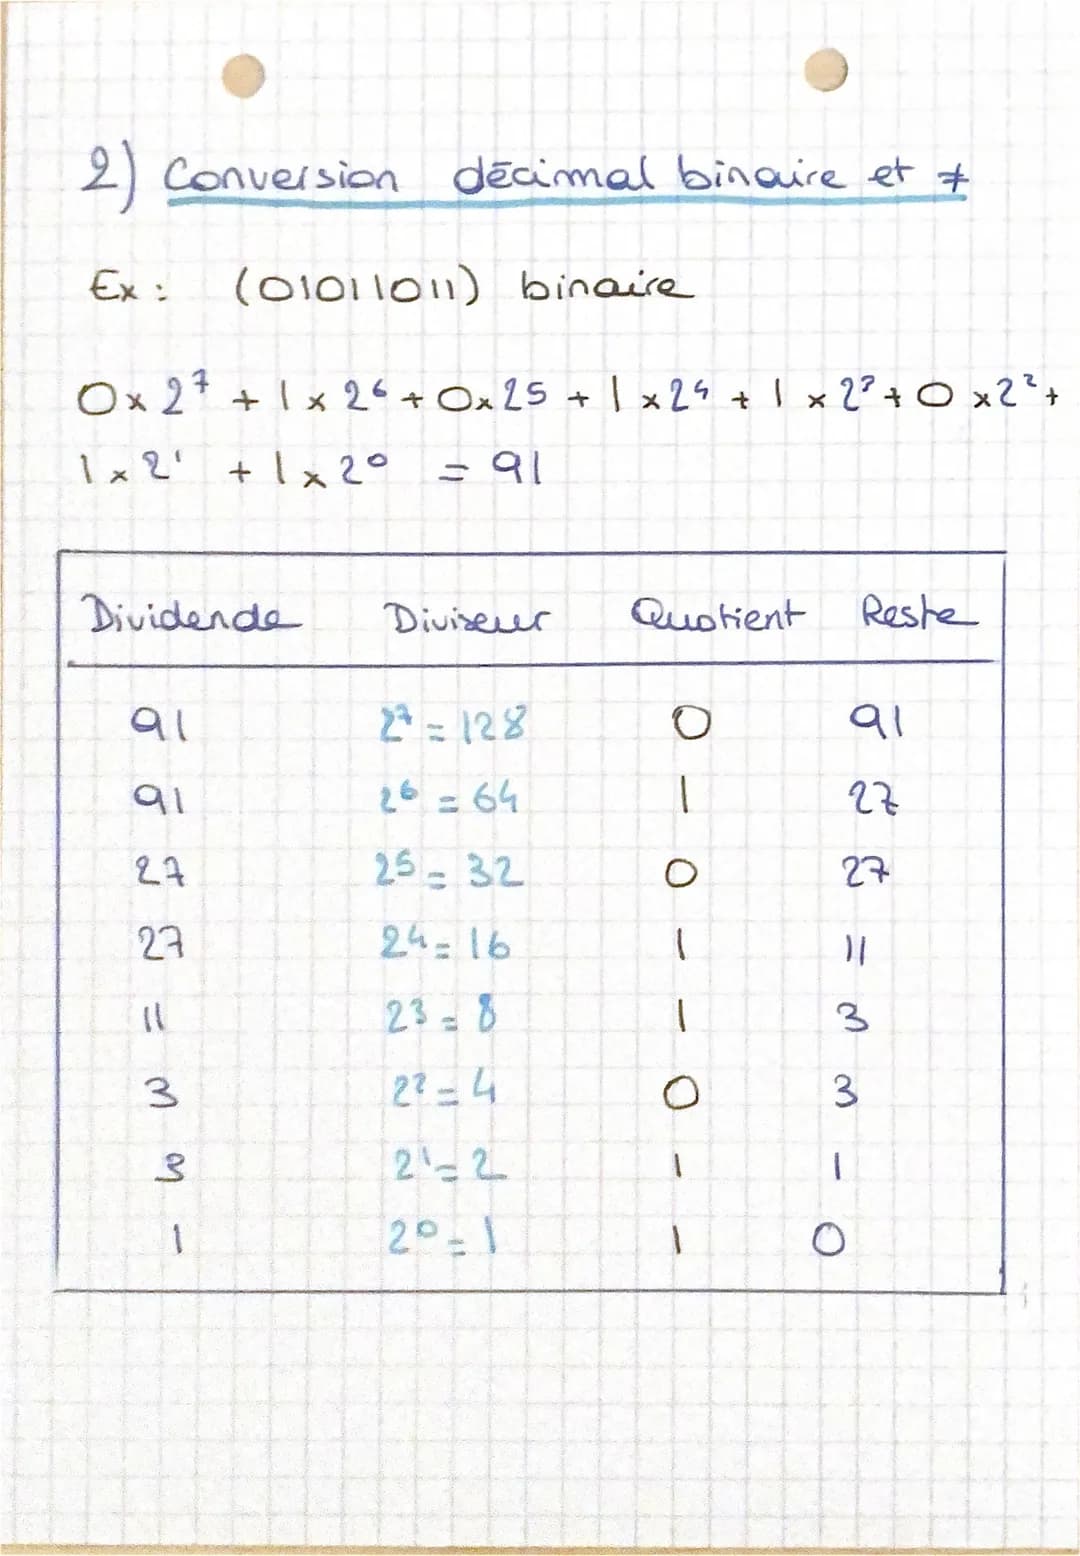 2) Conversion décimal binaire et ≠
Ex : (01011011) binaire
0 x 2⁷ + 1 x 2⁶ + 0 x 2⁵ + 1 x 2⁴ + 1 x 2³ + 0 x 2² +
1 x 2¹ + 1 x 2⁰ = 91
Dividende Diviseur Quotient Reste
91 2⁷ = 128 0 91
91 2⁶ = 64 1 27
27 2⁵ = 32 0 27
27 2⁴ = 16 1 11
11 2³ = 8 1 3
3 2² = 4 0 3
3 2¹ = 2 1 1
1 2⁰ = 1 1 0